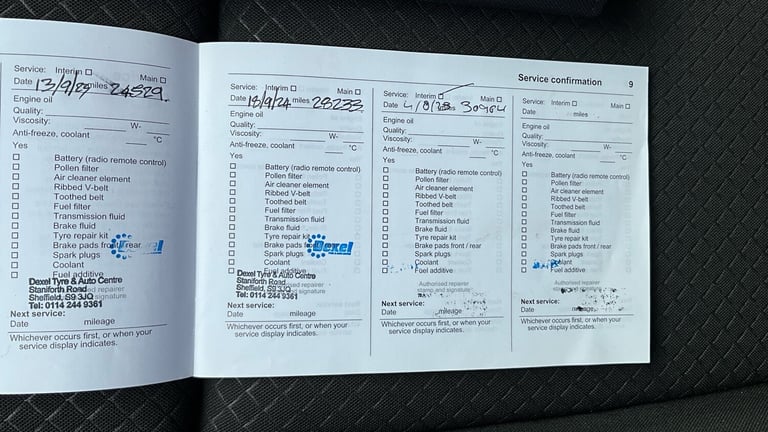 Service: Interim ☐ Main ☐
Date 13/9/23 miles 24529.
Engine oil
Quality:
Viscosity: W-
Anti-freeze, coolant °C
Yes
☐ Battery (radio remote control)
☐ Pollen filter
☐ Air cleaner element
☐ Ribbed V-belt
☐ Toothed belt
☐ Fuel filter
☐ Transmission fluid
☐ Brake fluid
☐ Tyre repair kit
☐ Brake pads front / rear
☐ Spark plugs
☐ Coolant
☐ Fuel additive
Dexel Tyre & Auto Centre
Staniforth Road
Sheffield, S9 3JQ
Tel: 0114 244 9361
Next service:
Date mileage
Whichever occurs first, or when your
service display indicates.
Service confirmation 9
Service: Interim ☐ Main ☐
Date 18/9/24 miles 28233
Engine oil
Quality:
Viscosity: W-
Anti-freeze, coolant °C
Yes
☐ Battery (radio remote control)
☐ Pollen filter
☐ Air cleaner element
☐ Ribbed V-belt
☐ Toothed belt
☐ Fuel filter
☐ Transmission fluid
☐ Brake fluid
☐ Tyre repair kit
☐ Brake pads
Dexel
☐ Spark plugs
☐ Coolant
☐ Fuel additive
Dexel Tyre & Auto Centre
Staniforth Road
Sheffield, S9 3JQ
Tel: 0114 244 9361
Next service:
Date mileage
Whichever occurs first, or when your
service display indicates.
Service: Interim ☐ Main ☐
Date miles 30964
Engine oil
Quality:
Viscosity: W-
Anti-freeze, coolant °C
Yes
☐ Battery (radio remote control)
☐ Pollen filter
☐ Air cleaner element
☐ Ribbed V-belt
☐ Toothed belt
☐ Fuel filter
☐ Transmission fluid
☐ Brake fluid
☐ Tyre repair kit
☐ Brake pads front / rear
☐ Spark plugs
☐ Coolant
☐ Fuel additive
Authorised repairer
stamp and signature
Next service:
Date mileage
Whichever occurs first, or when your
service display indicates.
Service: Interim ☐ Main ☐
Date miles
Engine oil
Quality:
Viscosity: W-
Anti-freeze, coolant °C
Yes
☐ Battery (radio remote control)
☐ Pollen filter
☐ Air cleaner element
☐ Ribbed V-belt
☐ Toothed belt
☐ Fuel filter
☐ Transmission fluid
☐ Brake fluid
☐ Tyre repair kit
☐ Brake pads front / rear
☐ Spark plugs
☐ Coolant
☐ Fuel additive
Authorised repairer
Next service:
Date mileage
Whichever occurs first, or when your
service display indicates.